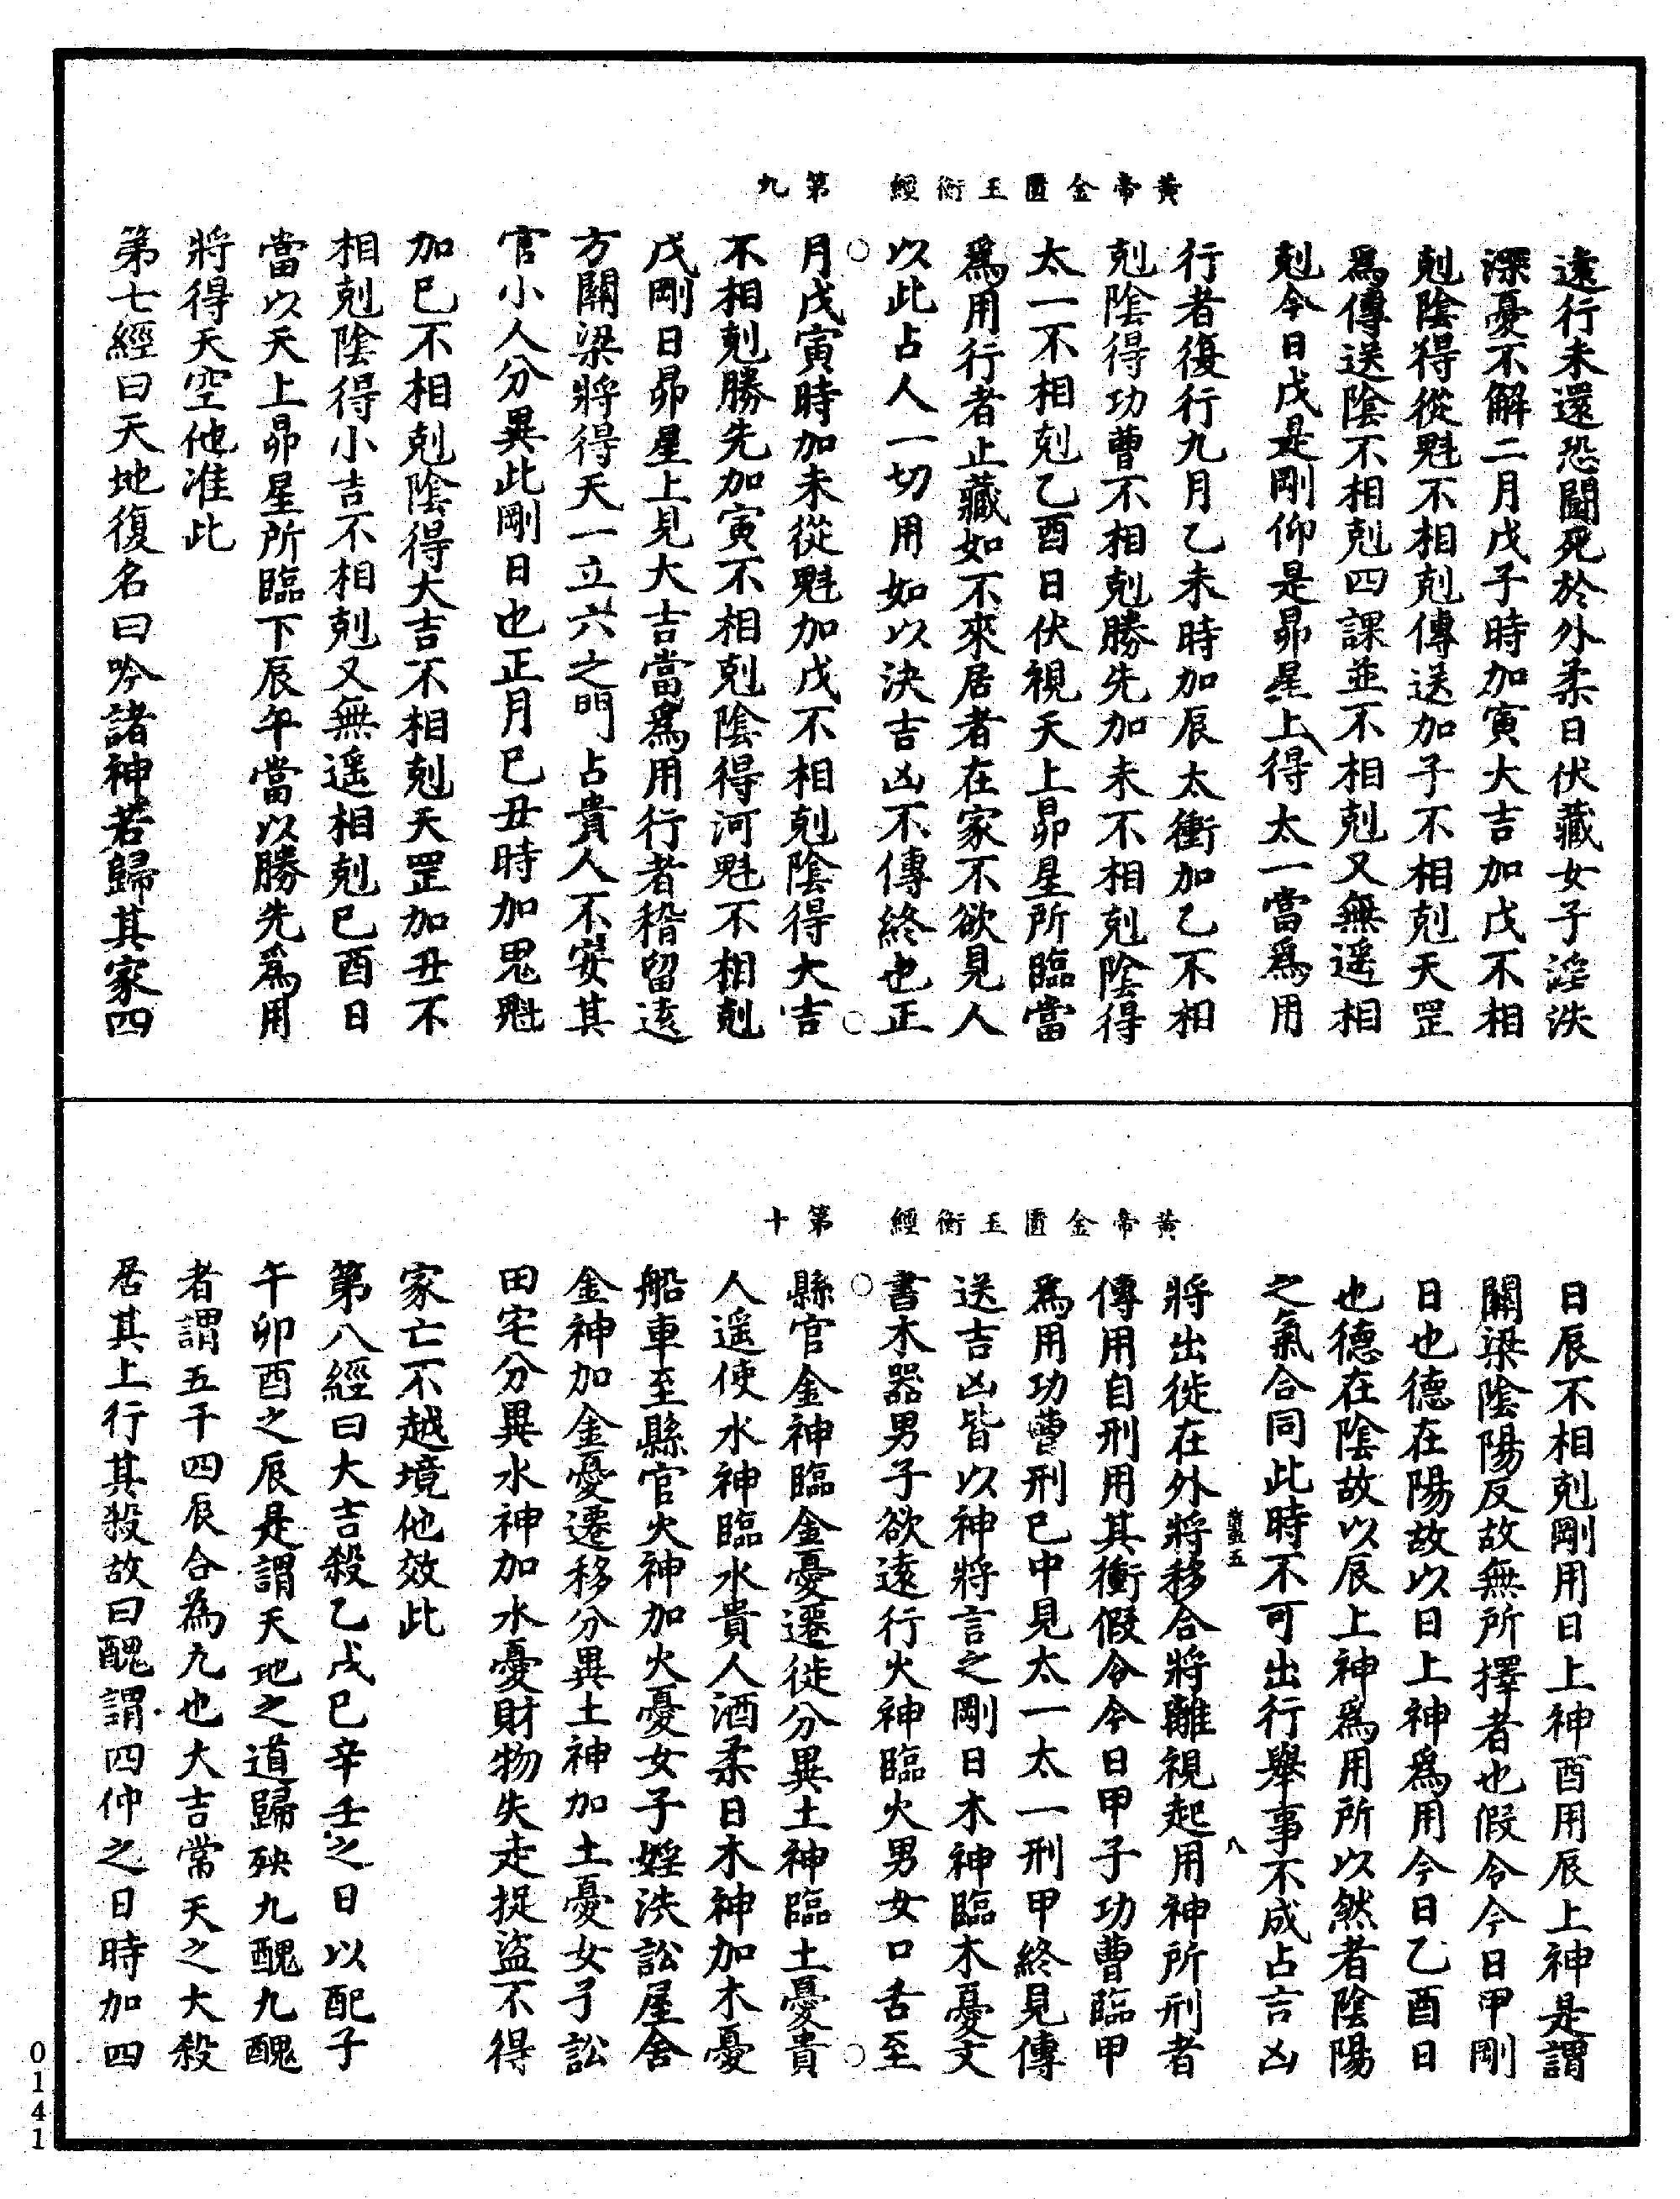 黃帝金匱玉衡經　第九
遠行未還恐闘死於外柔日伏藏女子淫泆
深憂不解二月戊子時加寅大吉加戊不相
剋陰得從魁不相剋傳送加子不相剋天罡
爲傳送陰不相剋四課並不相剋又無遥相
剋今日戊是剛仰是昴星上得太一當爲用
行者復行九月乙未時加辰太衝加乙不相
剋陰得功曹不相剋勝先加未不相剋陰得
太一不相剋乙酉日伏視天上昴星所臨當
爲用行者止藏如不來居者在家不欲見人
以此占人一切用如以決吉凶不傳終也正
月戊寅時加未從魁加戊不相剋陰得大吉
不相剋勝先加寅不相剋剋陰得河魁不相剋
戊剛日昴星上見大吉當爲用行者稽留遠
方關梁將得天一立六之門占貴人不安其
官小人分異此剛日也正月巳丑時加鬼魁
加巳不相剋陰得大吉不相剋天罡加丑不
相剋陰得小吉不相剋又無遥相剋巳酉日
當以天上昴星所臨下辰午當以勝先爲用
將得天空他准此
第七經曰天地復名曰吟諸神若歸其家四
黃帝金匱玉衡經　第十
日辰不相剋剛用日上神酉用辰上神是謂
關梁陰陽反故無所擇者也假令今日甲剛
日也德在陽故以日上神爲用今日乙酉日
也德在陰故以辰上神爲用所以然者陰陽
之氣合同此時不可出行舉事不成占言凶
將出徙在外將移合將離視起用神所刑者
傳用自刑用其衝假令今日甲子功曹臨甲
爲用功曹刑巳中見太一太一刑甲終見傳
送吉凶皆以神將言之剛日木神臨木憂文
書木器男子欲遠行火神臨火男女口舌至
縣官金神臨金憂遷徙分異土神臨土憂貴
人遥使水神臨水貴人酒柔日木神加木憂
船車至縣官火神加火憂女子婬泆訟屋舍
金神加金憂遷移分異土神加土憂女子訟
田宅分異水神加水憂財物失走捉盜不得
家亡不越境他效此
第八經曰大吉殺乙戊巳辛壬之日以配子
午卯酉之辰是謂天地之道歸殃九醜九醜
者謂五干四辰合為九也大吉常天之大殺
居其上行其殺故曰醜謂四仲之日時加四
八
0141